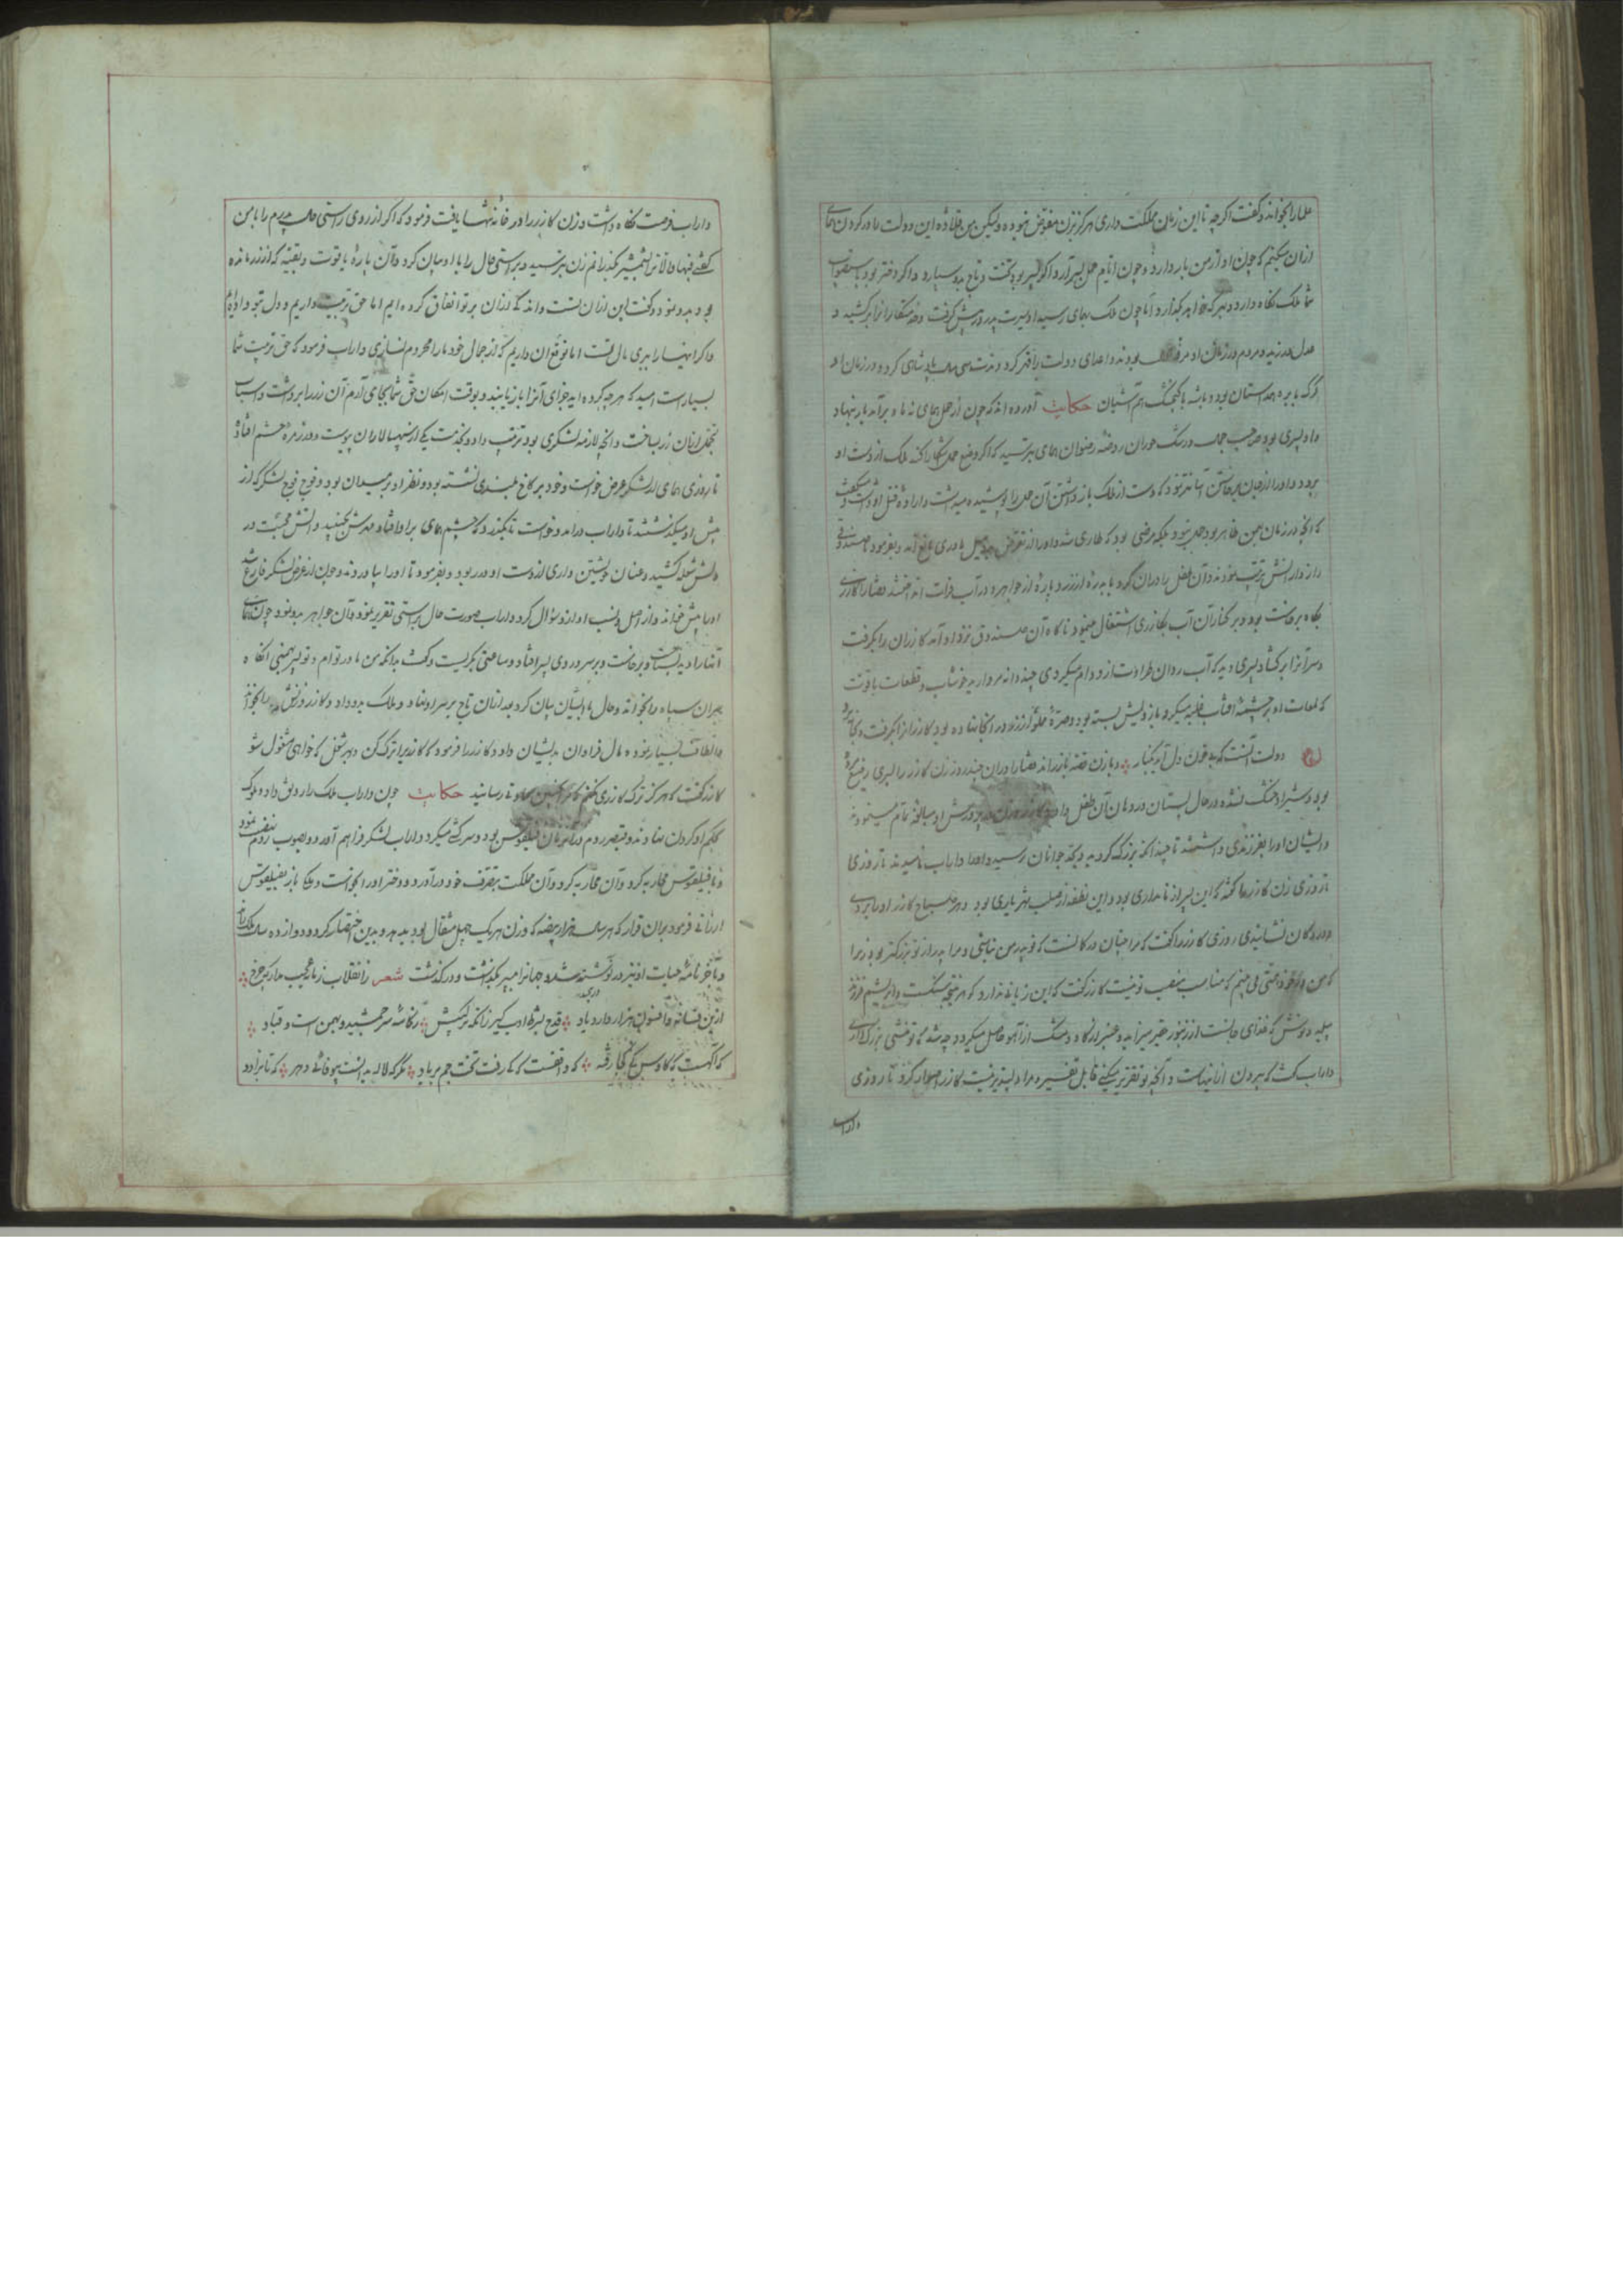 علما را بخواند و گفت اگرچه تا این زمان مملکت داری هرگز بزن مفوض نبوده ولیکن من قلاده این دولت را در گردن همای
ازان میکنم که چون او از من بار دارد و چون ایام حمل بسر آرد اگر پسر بود تخت و تاج بدو سپارد و اگر دختر بود باستصواب
شما ملک نگاه دارد و بهر که خواهد بگذارد اما چون ملک بهمای رسید او سیرت پدر در پیش گرفت و
عدل ورزید و مردم در زمان او مرفه بودند و اعدای دولت را قهر کرد و مدت سی سال پادشاهی کرد و در زمان او
گرگ با بره همداستان بود و باشه با کنجشک هم آشیان حکایت آورده اند که چون از حمل همای نه ماه برآمد بار بنهاد
و او پسری بود صاحب جمال و رشک حوران روضه رضوان همای بترسید که اگر وضع حمل آشکارا کند ملک از دست او
برود و او را از جهان برخاستن آسانتر بود که دست از ملک باز داشتن آن حال را پوشیده میداشت و
که آنچه در زمان بهمن ظاهر بود حمل نبود بلکه مرضی بود که طاری شد و او را از مادری مانع آمد و بفرمود تا صندوقی
راز دارانش ترتیب نمودند و آن طفل را دران کرد و با بدره از زر و پاره از جواهر و در آب فرات انداختند قضا را گازری
پگاه برخاست بود و بر کنار آن آب بگازری اشتغال مینمود ناگاه آن صندوق نزد او آمد گازر آن را بگرفت
و سر آنرا بر گشاد پسری دید که آب روان طراوت ازو وام میکرد ی چند دانه مروارید خوشاب و قطعات یاقوت
که لمعات او بر چشمه آفتاب غلبه میکرد بازویش بسته بود و صره مملو از زر در آنجا نهاده بود گازر آنرا بگرفت و بخانه برد
دولت آنست که بی خون دل آید بکنار و با زن قصه باز راند قضا را دران چند روز زن گازر را پسری رضیع مرده
بود و شیر او خشک نشده در حال پستان در دهان آن طفل داد و گازر و زن در پرورش او مبالغه تمام مینمودند
و ایشان او را بفرزندی داشتند تا چندانکه بزرگ گردید و بحد جوانان رسید و او را داراب نامیدند تا روزی
تا روزی زن گازر ها گفته که این پسر از نامداری بود و این نطفه از صلب شهریاری بود و هر صباح گازر او را ببردی
و در دکان نشاندی روزی گازر را گفت که مرا چنان در گمانست که تو پدر من نباشی و مرا پدر از تو بزرگتر بود زیرا
که من در خود همتی می بینم که مناسب منصب تو نیست گازر گفت که این زیانی ندارد که هر نتیجه سنگست و ابریشم فرزند
پیله و نوشش که غذای جانست از زنبور حقیر میزاید و عنبر از گاو و مشک از آهو حاصل میگردد چه شد که تو منشی بزرگ داری
داراب گفت که بیرون ازینهاست و آنچه تو تقریر میکنی قابل تفسیر و مرا دلپذیر نیست گازر اصرار کرد تا روزی
داراب
داراب فرصت نگاه داشت و زن گازر را در خانه تنها یافت فرمود که اگر از روی راستی حال پدرم را با من
گفتی فبها والا بشمشیر بگذرانم زن بترسید و براستی حال را با او بیان کرد و آن پاره یاقوت و بقیه که از زر مانده
بود بدو نمود و گفت این ازان تست و اندکی ازان بر تو انفاق کرده ایم اما حق تربیت داریم و دل بتو داده ایم
و اگر اینها را ببری مال تست اما توقع آن داریم که از جمال خود ما را محروم نسازی داراب فرمود که حق تربیت شما
بسیارست امید که هرچه کرده اید جزای آنرا باز یابید و بوقت امکان حق شما بجای آرم آن زر را برداشت و اسباب
تجمل ازان زر بساخت و آنچه لازمه لشکری بود ترتیب داد و بخدمت یکی از سپهسالاران پیوست و در زمره حشم افتاد
تا روزی همای از لشکر عرض خواست و خود بر کاخ بلندی نشسته بود و نظر او بر میدان بود و فوج فوج لشکر که از
پیش او میگذشتند تا داراب درآمد و خواست تا بگذرد که چشم همای برو افتاد مهرش بجنبید و آتش محبت در
دلش شعله کشید و عنان خویشتن داری از دست او در ربود و بفرمود تا او را بیاوردند و چون از عرض لشکر فارغ شد
او را پیش خواند و از اصل و نسب او ازو سؤال کرد داراب صورت حال براستی تقریر نمود و آن جواهر بدو نمود چون همای
آنها را دید بشناخت و برخاست و بر سر و روی پسر افتاد و ساعتی بگریست و گفت بدانکه من مادر توام و تو پسر بهمنی آنگاه
سران سپاه را بخواند و حال با ایشان بیان کرد بعد ازان تاج بر سر او نهاد و ملک بدو داد و گازر و زنش را بخواند
و الطاف بسیار نموده مال فراوان بدیشان داد و گازر را فرمود که گازری را ترک کن و بهر شغل که خواهی مشغول شو
گازر گفت که هرگز ترک گازری نکنم که مرا بچنین سعادتی رسانید حکایت چون داراب ملک را رونق داد و ملوک
بحکم او گردن نهادند و قیصر روم دران زمان فیلقوس بود و سرکشی میکرد داراب لشکر فراهم آورد و بصوب روم نهضت نمود
و با فیلقوس محاربه کرد و آن محاربه کرد و آن مملکت بتصرف خود درآورد و دختر او را بخواست و ملک باز بفیلقوس
ارزانی فرمود بران قرار که هر سال هزار بیضه که وزن هر یک چهل مثقال بود بدهد و بدین اختصار کرد و دوازده سال ملک راند
و آخر نامه حیات او نیز در نوشته شد و جهان را به پسر بگذاشت و درگذشت شعر ز انقلاب زمانه عجب مدار که چرخ
ازین فسانه و افسون هزار دارد یاد قدح بشرط ادب گیر زانکه ترکیبش ز کاسه سر جمشید و بهمن است و قباد
که آگهست که کاوس کی کجا رفتند که واقفست که کی رفت تخت جم بر باد مگر که لاله بدانست بیوفائی دهر که تا بزاد و